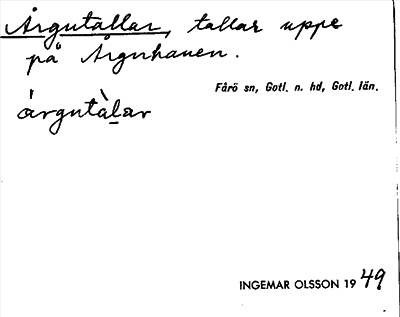 Årgutallar, tallar uppe
på Årguhauen.
Fårö sn, Gotl. n. hd, Gotl. län.
árgutàlar
INGEMAR OLSSON 1949